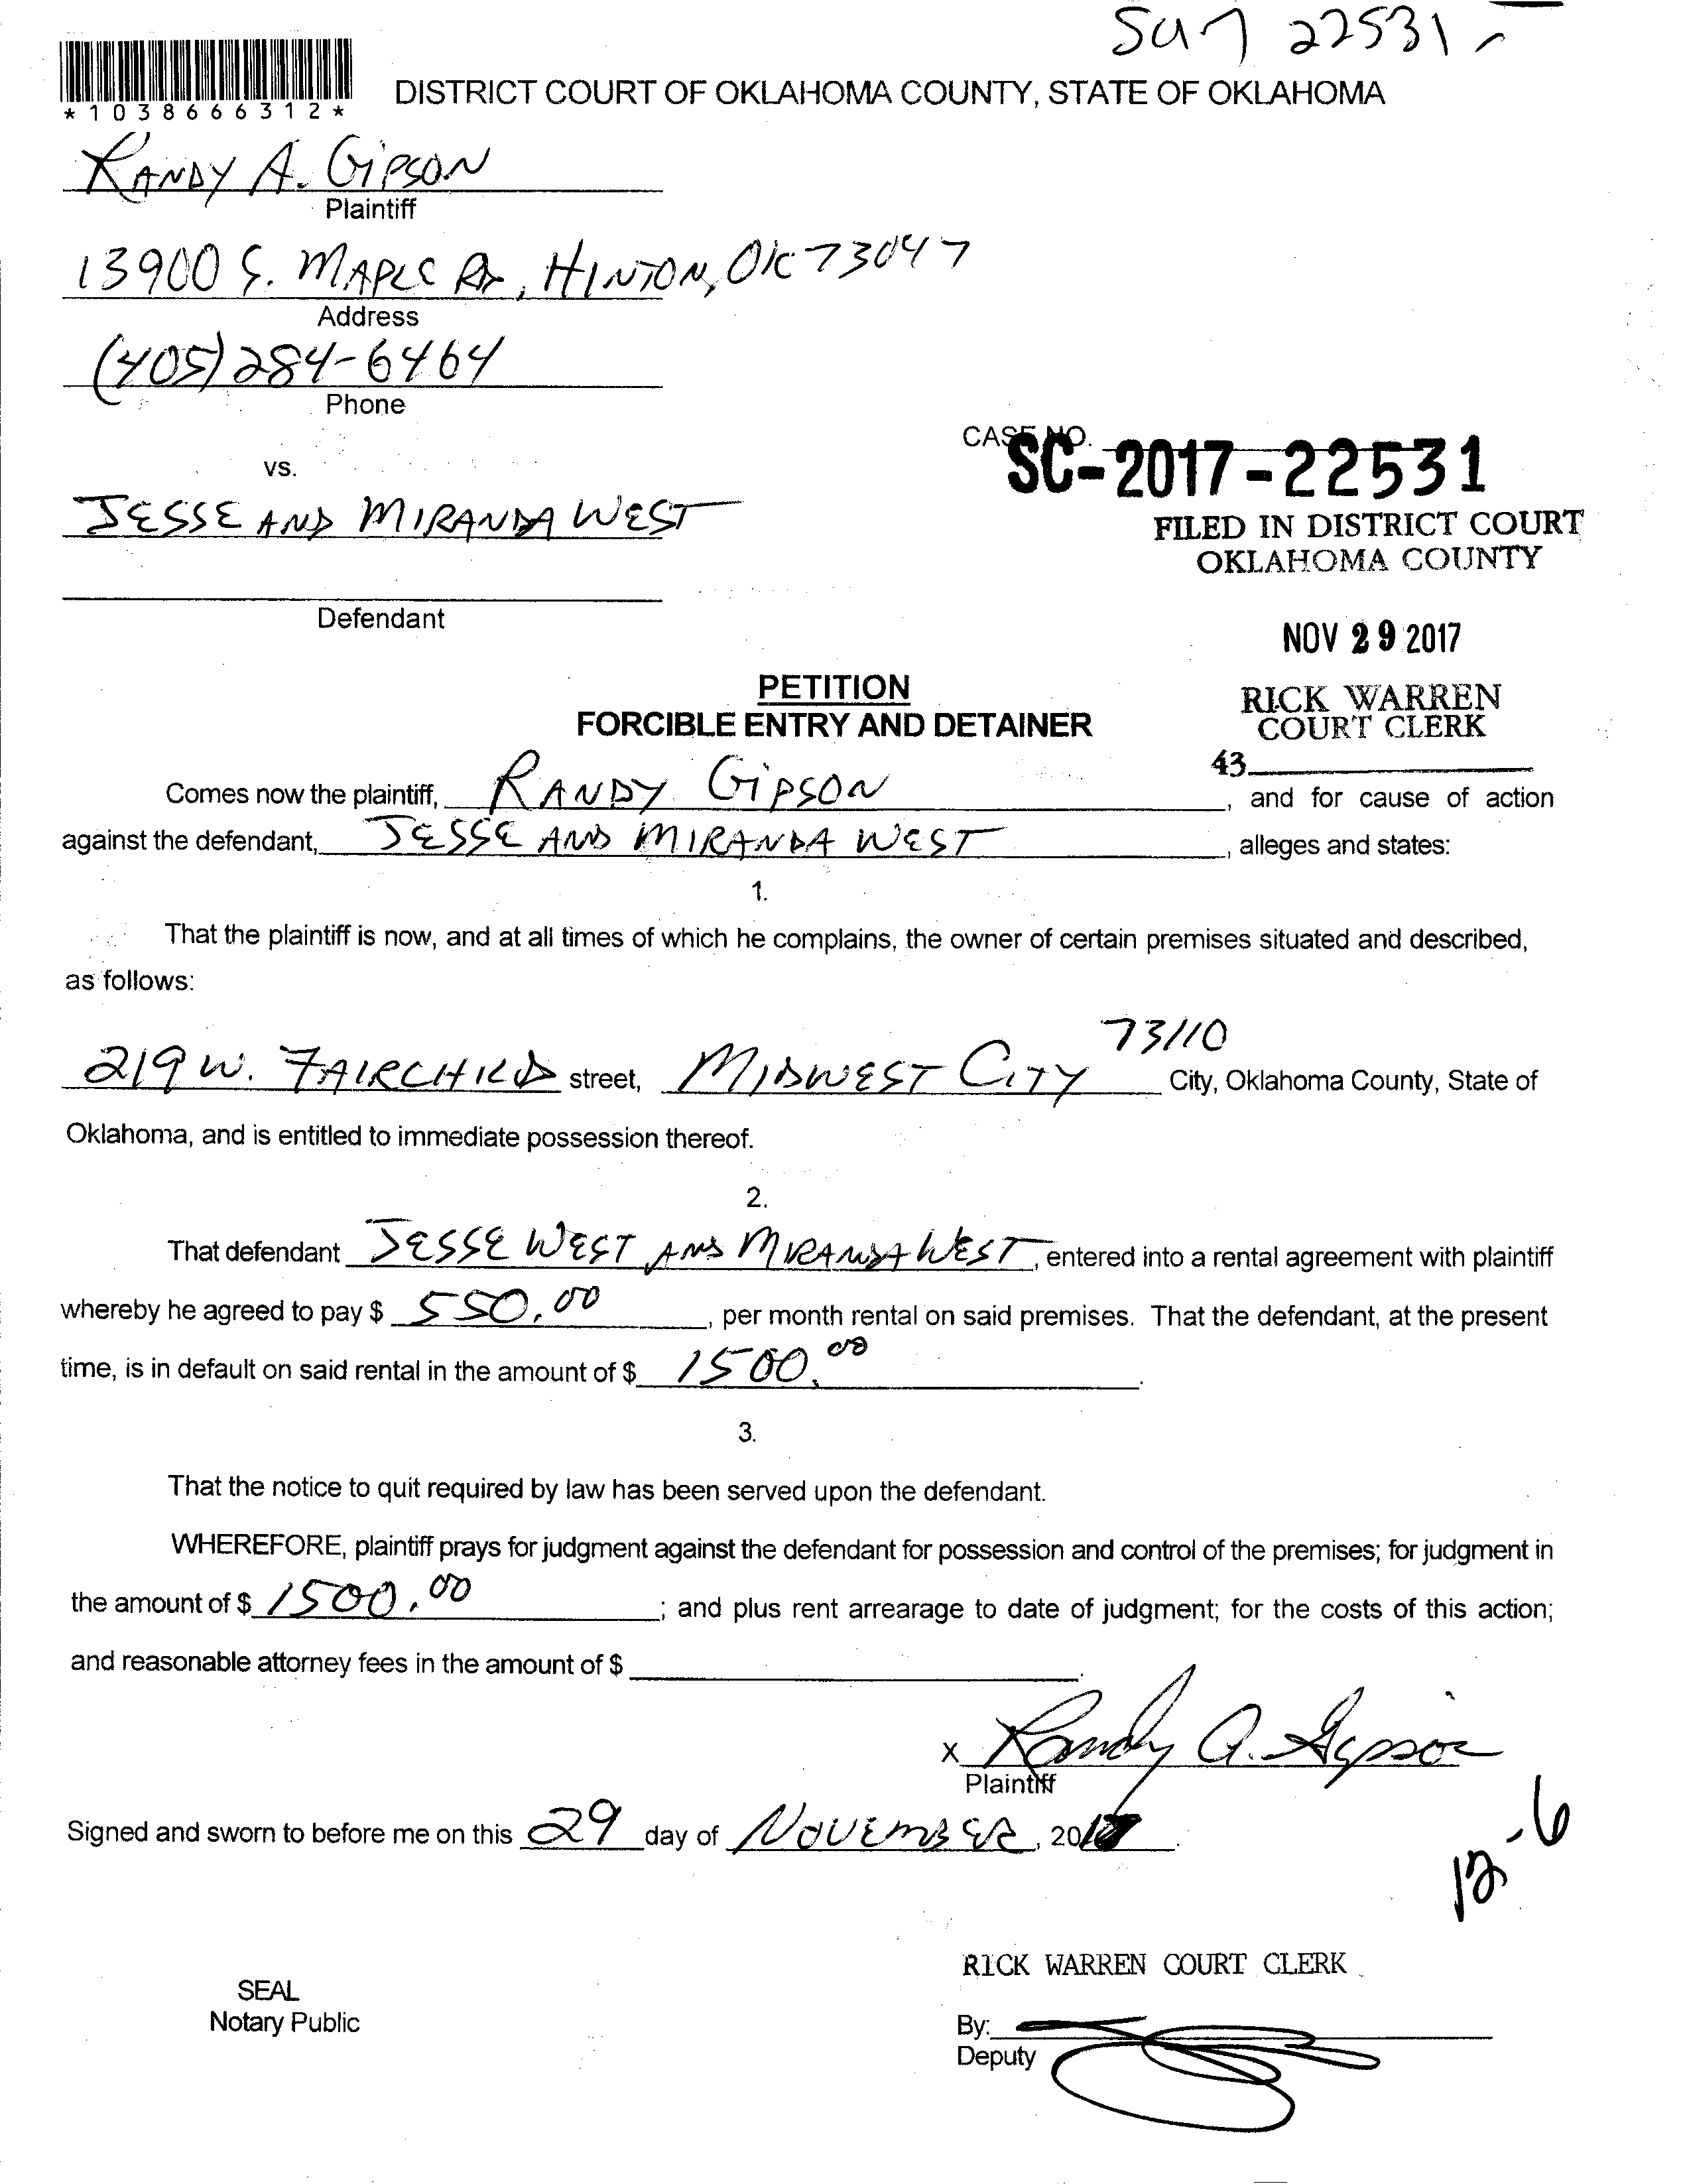 SC17 22531-
*1038666312*
DISTRICT COURT OF OKLAHOMA COUNTY, STATE OF OKLAHOMA
RANDY A. GIPSON
Plaintiff
13900 S. MAPLE RD, HINTON, OK 73047
Address
(405) 284-6464
Phone
CASE NO.
SC-2017-22531
vs.
JESSE AND MIRANDA WEST
FILED IN DISTRICT COURT
OKLAHOMA COUNTY
Defendant
NOV 29 2017
PETITION
RICK WARREN
FORCIBLE ENTRY AND DETAINER
COURT CLERK
43
Comes now the plaintiff, RANDY GIPSON, and for cause of action
against the defendant, JESSE AND MIRANDA WEST, alleges and states:
1.
That the plaintiff is now, and at all times of which he complains, the owner of certain premises situated and described,
as follows:
73110
219 W. FAIRCHILD street, MIDWEST CITY City, Oklahoma County, State of
Oklahoma, and is entitled to immediate possession thereof.
2.
That defendant JESSE WEST AND MIRANDA WEST, entered into a rental agreement with plaintiff
whereby he agreed to pay $ 550.00, per month rental on said premises. That the defendant, at the present
time, is in default on said rental in the amount of $ 1500.00.
3.
That the notice to quit required by law has been served upon the defendant.
WHEREFORE, plaintiff prays for judgment against the defendant for possession and control of the premises; for judgment in
the amount of $ 1500.00; and plus rent arrearage to date of judgment; for the costs of this action;
and reasonable attorney fees in the amount of $
X Randy A. Gipson
Plaintiff
Signed and sworn to before me on this 29 day of NOVEMBER, 2017.
12-6
RICK WARREN COURT CLERK
SEAL
Notary Public
By:
Deputy